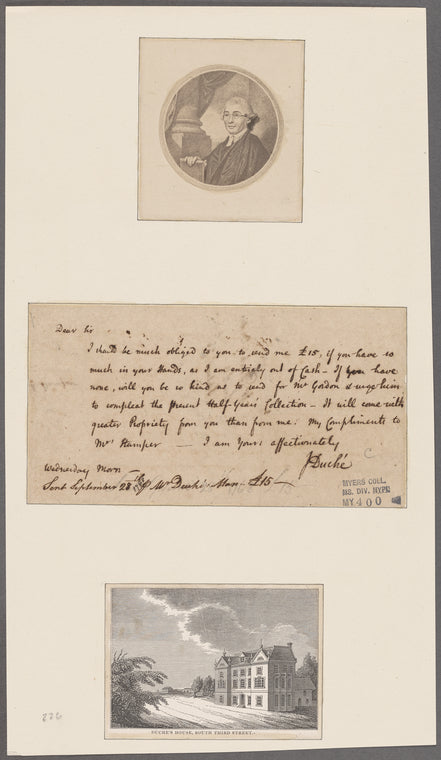 Dear Sir
I should be much obliged to you to send me £15, if you have so
much in your Hands, as I am entirely out of Cash – If you have
none, will you be so kind as to send for Mr Gordon & urge him
to compleat the present Half-Years Collection – It will come with
greater Propriety from you than from me: My Compliments to
Mrs Hamper — I am Yours affectionately
J Duché
Wednesday Morn –
Sent September 28 Mr Duché's Man – £15 –
MYERS COLL.
MS. DIV. NYPL
MY 400
DUCHE'S HOUSE, SOUTH THIRD STREET.
226